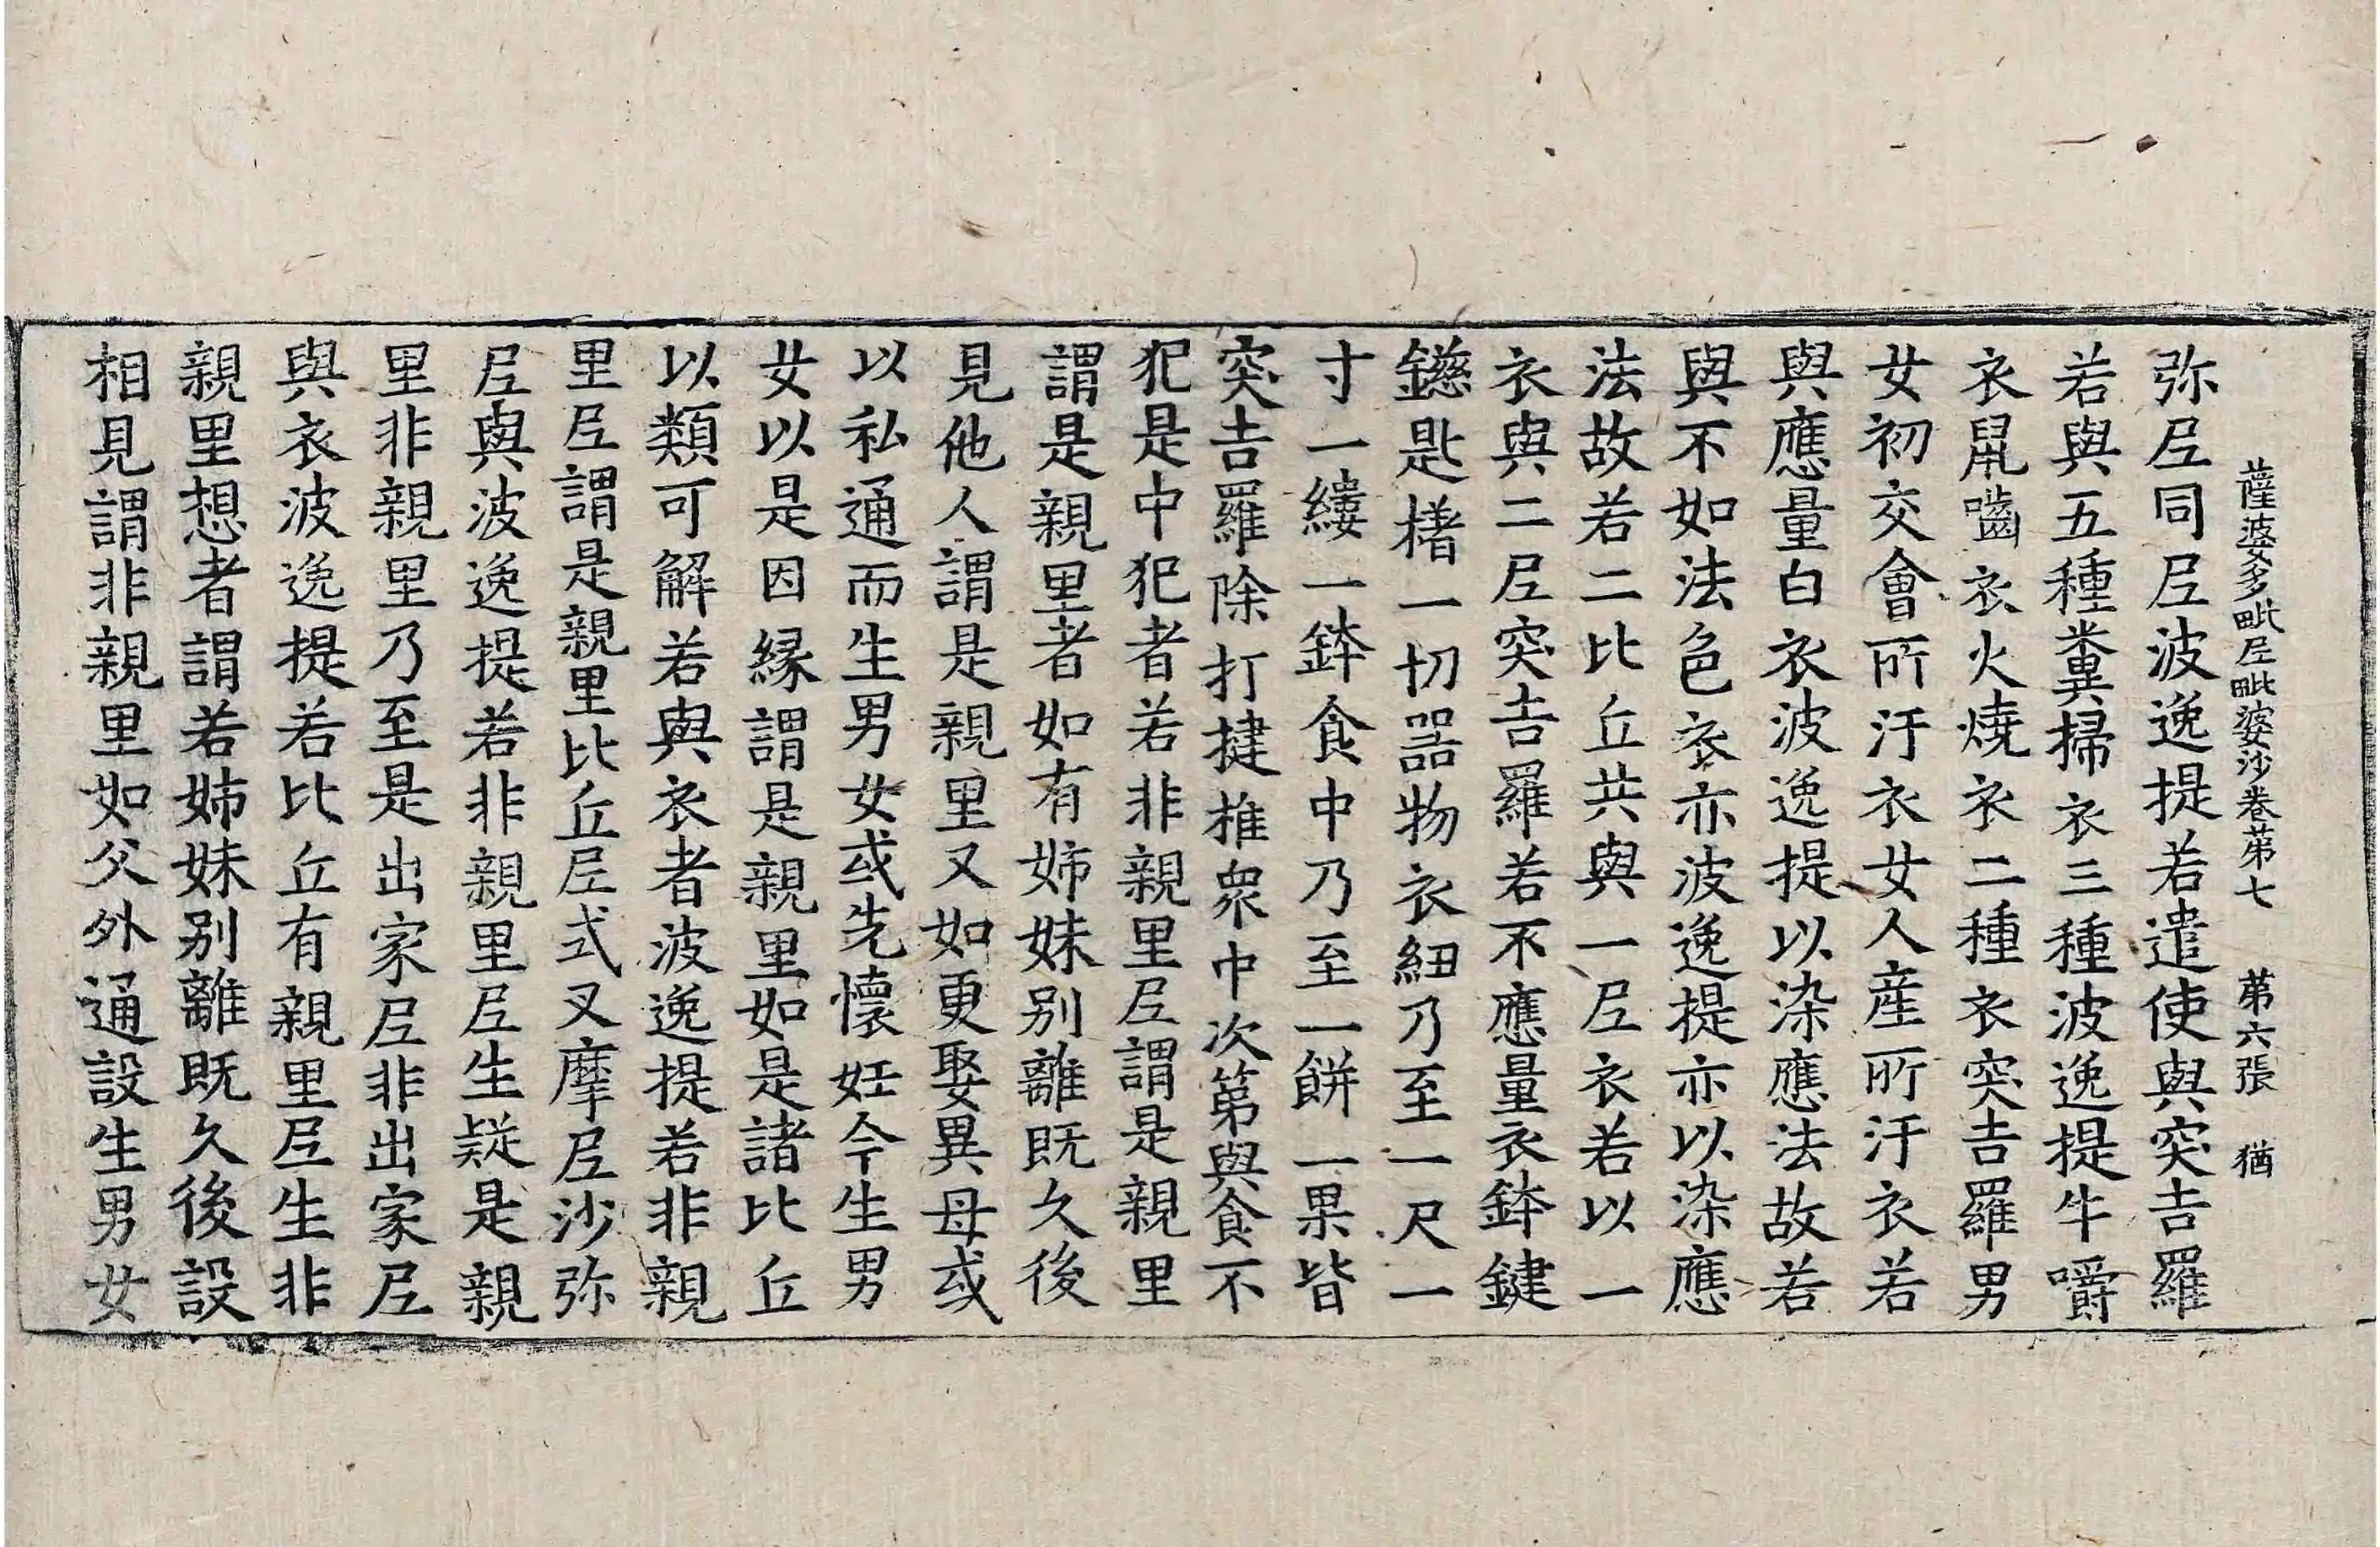 薩婆多毗尼毗婆沙卷苐七 苐六張 猶
弥尼同尼波逸提若遣使與突吉羅
若與五種糞掃衣三種波逸提牛嚼
衣鼠嚙衣火燒衣二種衣突吉羅男
女初交會所汙衣女人産所汙衣若
與應量白衣波逸提以染應法故若
與不如法色衣亦波逸提亦以染應
法故若二比丘共與一尼衣若以一
衣與二尼突吉羅若不應量衣鉢鍵
鎡匙楮一切器物衣紐乃至一尺一
寸一縷一鉢食中乃至一餅一果皆
突吉羅除打揵椎衆中次第與食不
犯是中犯者若非親里尼謂是親里
謂是親里者如有姉妹别離既久後
見他人謂是親里又如更娶異母或
以私通而生男女或先懷妊今生男
女以是因縁謂是親里如是諸比丘
以類可解若與衣者波逸提若非親
里尼謂是親里比丘尼式叉摩尼沙弥
尼與波逸提若非親里尼生疑是親
里非親里乃至是出家尼非出家尼
與衣波逸提若比丘有親里尼生非
親里想者謂若姉妹别離既久後設
相見謂非親里如父外通設生男女